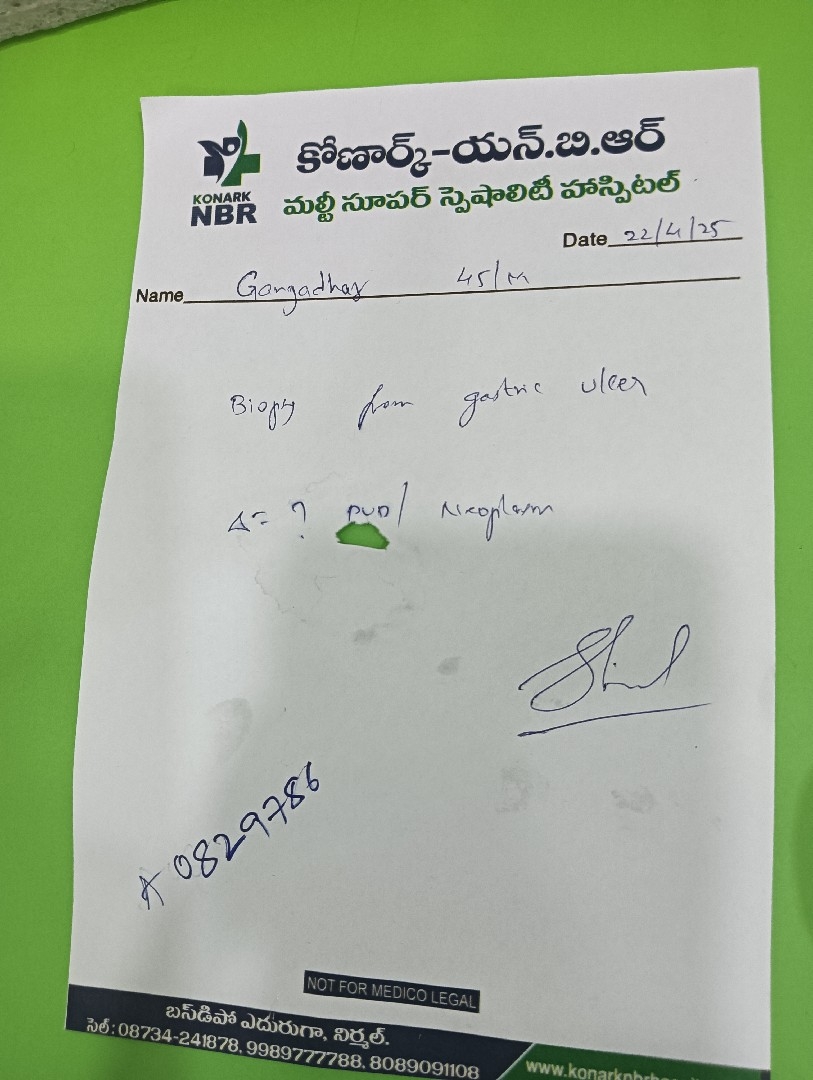 కోణార్క్-యన్.బి.ఆర్
KONARK
NBR
మల్టీ సూపర్ స్పెషాలిటీ హాస్పిటల్
Date 22/4/25
Name Gangadhar 45/M
Biopsy from gastric ulcer
Δ= ? PUD/ Neoplasm
A 0829786
NOT FOR MEDICO LEGAL
బస్‌డిపో ఎదురుగా, నిర్మల్.
సెల్: 08734-241878, 9989777788, 8089091108